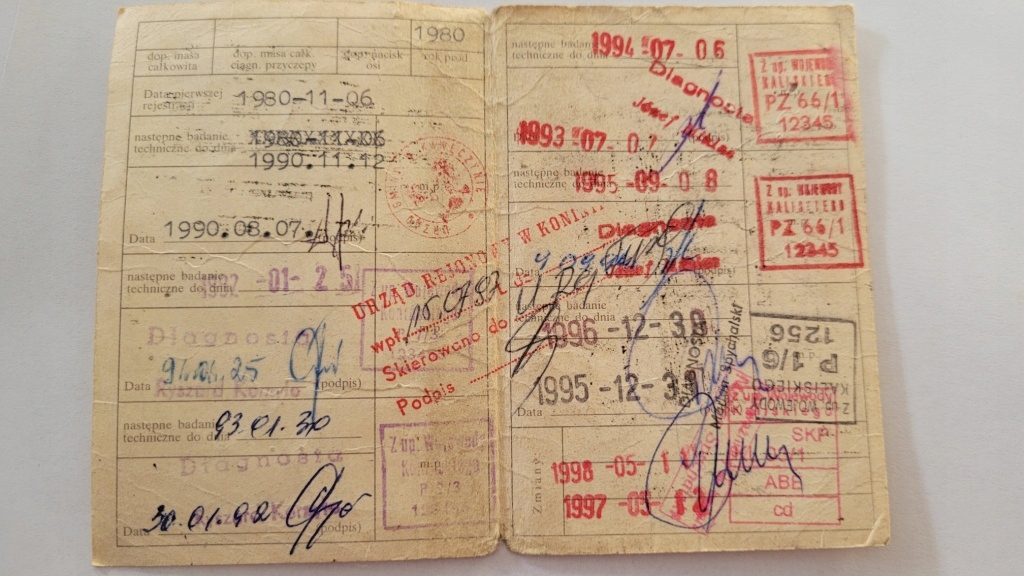 1980
dop. masa całkowita
dop. masa całk. ciągn. przyczepy
dop. nacisk osi
rok prod
Data pierwszej rejestracji 1980-11-06
następne badanie techniczne do dnia 1980-11-06
1990.11.12
Data 1990.08.07. (podpis)
następne badanie techniczne do dnia 1992 -01- 25
Diagnosta
Data 91.01.25 (podpis)
Ryszard
następne badanie techniczne do dnia 93.01.30
Diagnosta
Data 30.01.92 (podpis)
Ryszard
Z up. Wojewody
m.p.
URZĄD REJONOWY W KONINIE
wpł. 15.07.92
Skierowano do
Podpis
następne badanie techniczne do dnia 1994 -07- 06
Diagnosta
Józef
1993 -07- 07
Z up. WOJEWODY
KALISKIEGO
PZ 66/1
12345
następne badanie techniczne do dnia 1995 -09- 08
Diagnosta
Józef
Data (podpis)
Z up. WOJEWODY
KALISKIEGO
PZ 66/1
12345
następne badanie techniczne do dnia 1996 -12- 30
Data 1995 -12- 30
DIAGNOSTA
Spychalski
Z up. WOJEWODY
KALISKIEGO
P 1/6
1256
Zmiany:
1998 -05- 12
1997 -05 12
SKP
ABE
cd